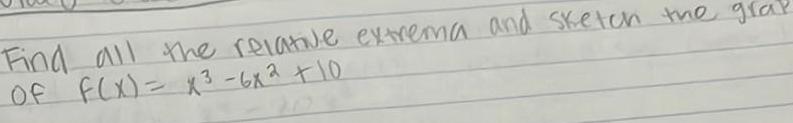 Find all the relative extrema and sketch the grap
Of f(x) = x³ - 6x² + 10